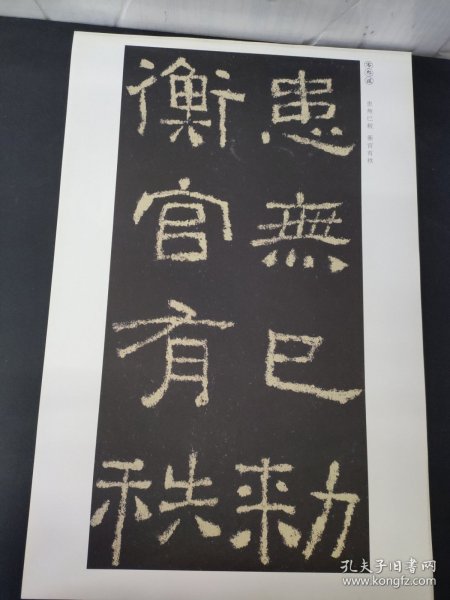 患無已敕 衡官有秩
患無已勑
衡官有秩
孔夫子旧书网
www.kongfz.com